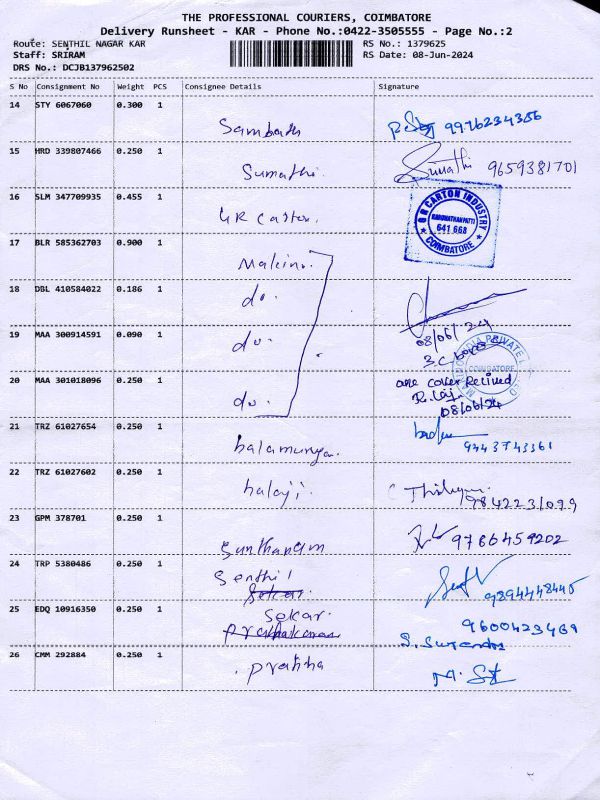 THE PROFESSIONAL COURIERS, COIMBATORE
Delivery Runsheet - KAR - Phone No.:0422-3505555 - Page No.:2
Route: SENTHIL NAGAR KAR RS No.: 1379625
Staff: SRIRAM RS Date: 08-Jun-2024
DRS No.: DCJB137962502
S No Consignment No Weight PCS Consignee Details Signature
14 STY 6067060 0.300 1
9976234356
15 HRD 339807466 0.250 1
Sumathi. Sumathi 9659381701
16 SLM 347709935 0.455 1
GR CARTON INDUSTRY
641 668
COIMBATORE
GR Carton.
17 BLR 585362703 0.900 1
Makino.
18 DBL 410584022 0.186 1
do.
19 MAA 300914591 0.090 1
08/06/24
do.
COIMBATORE
20 MAA 301018096 0.250 1
one cover Recived
do. 08/06/24
21 TRZ 61027654 0.250 1
balamuruga. 9443743361
22 TRZ 61027602 0.250 1
balaji. 9842231099
23 GPM 378701 0.250 1
9786459202
Santhanam
24 TRP 5380486 0.250 1
Senthil
9894448445
25 EDQ 10916350 0.250 1
Sekar. 9600423469
26 CMM 292884 0.250 1